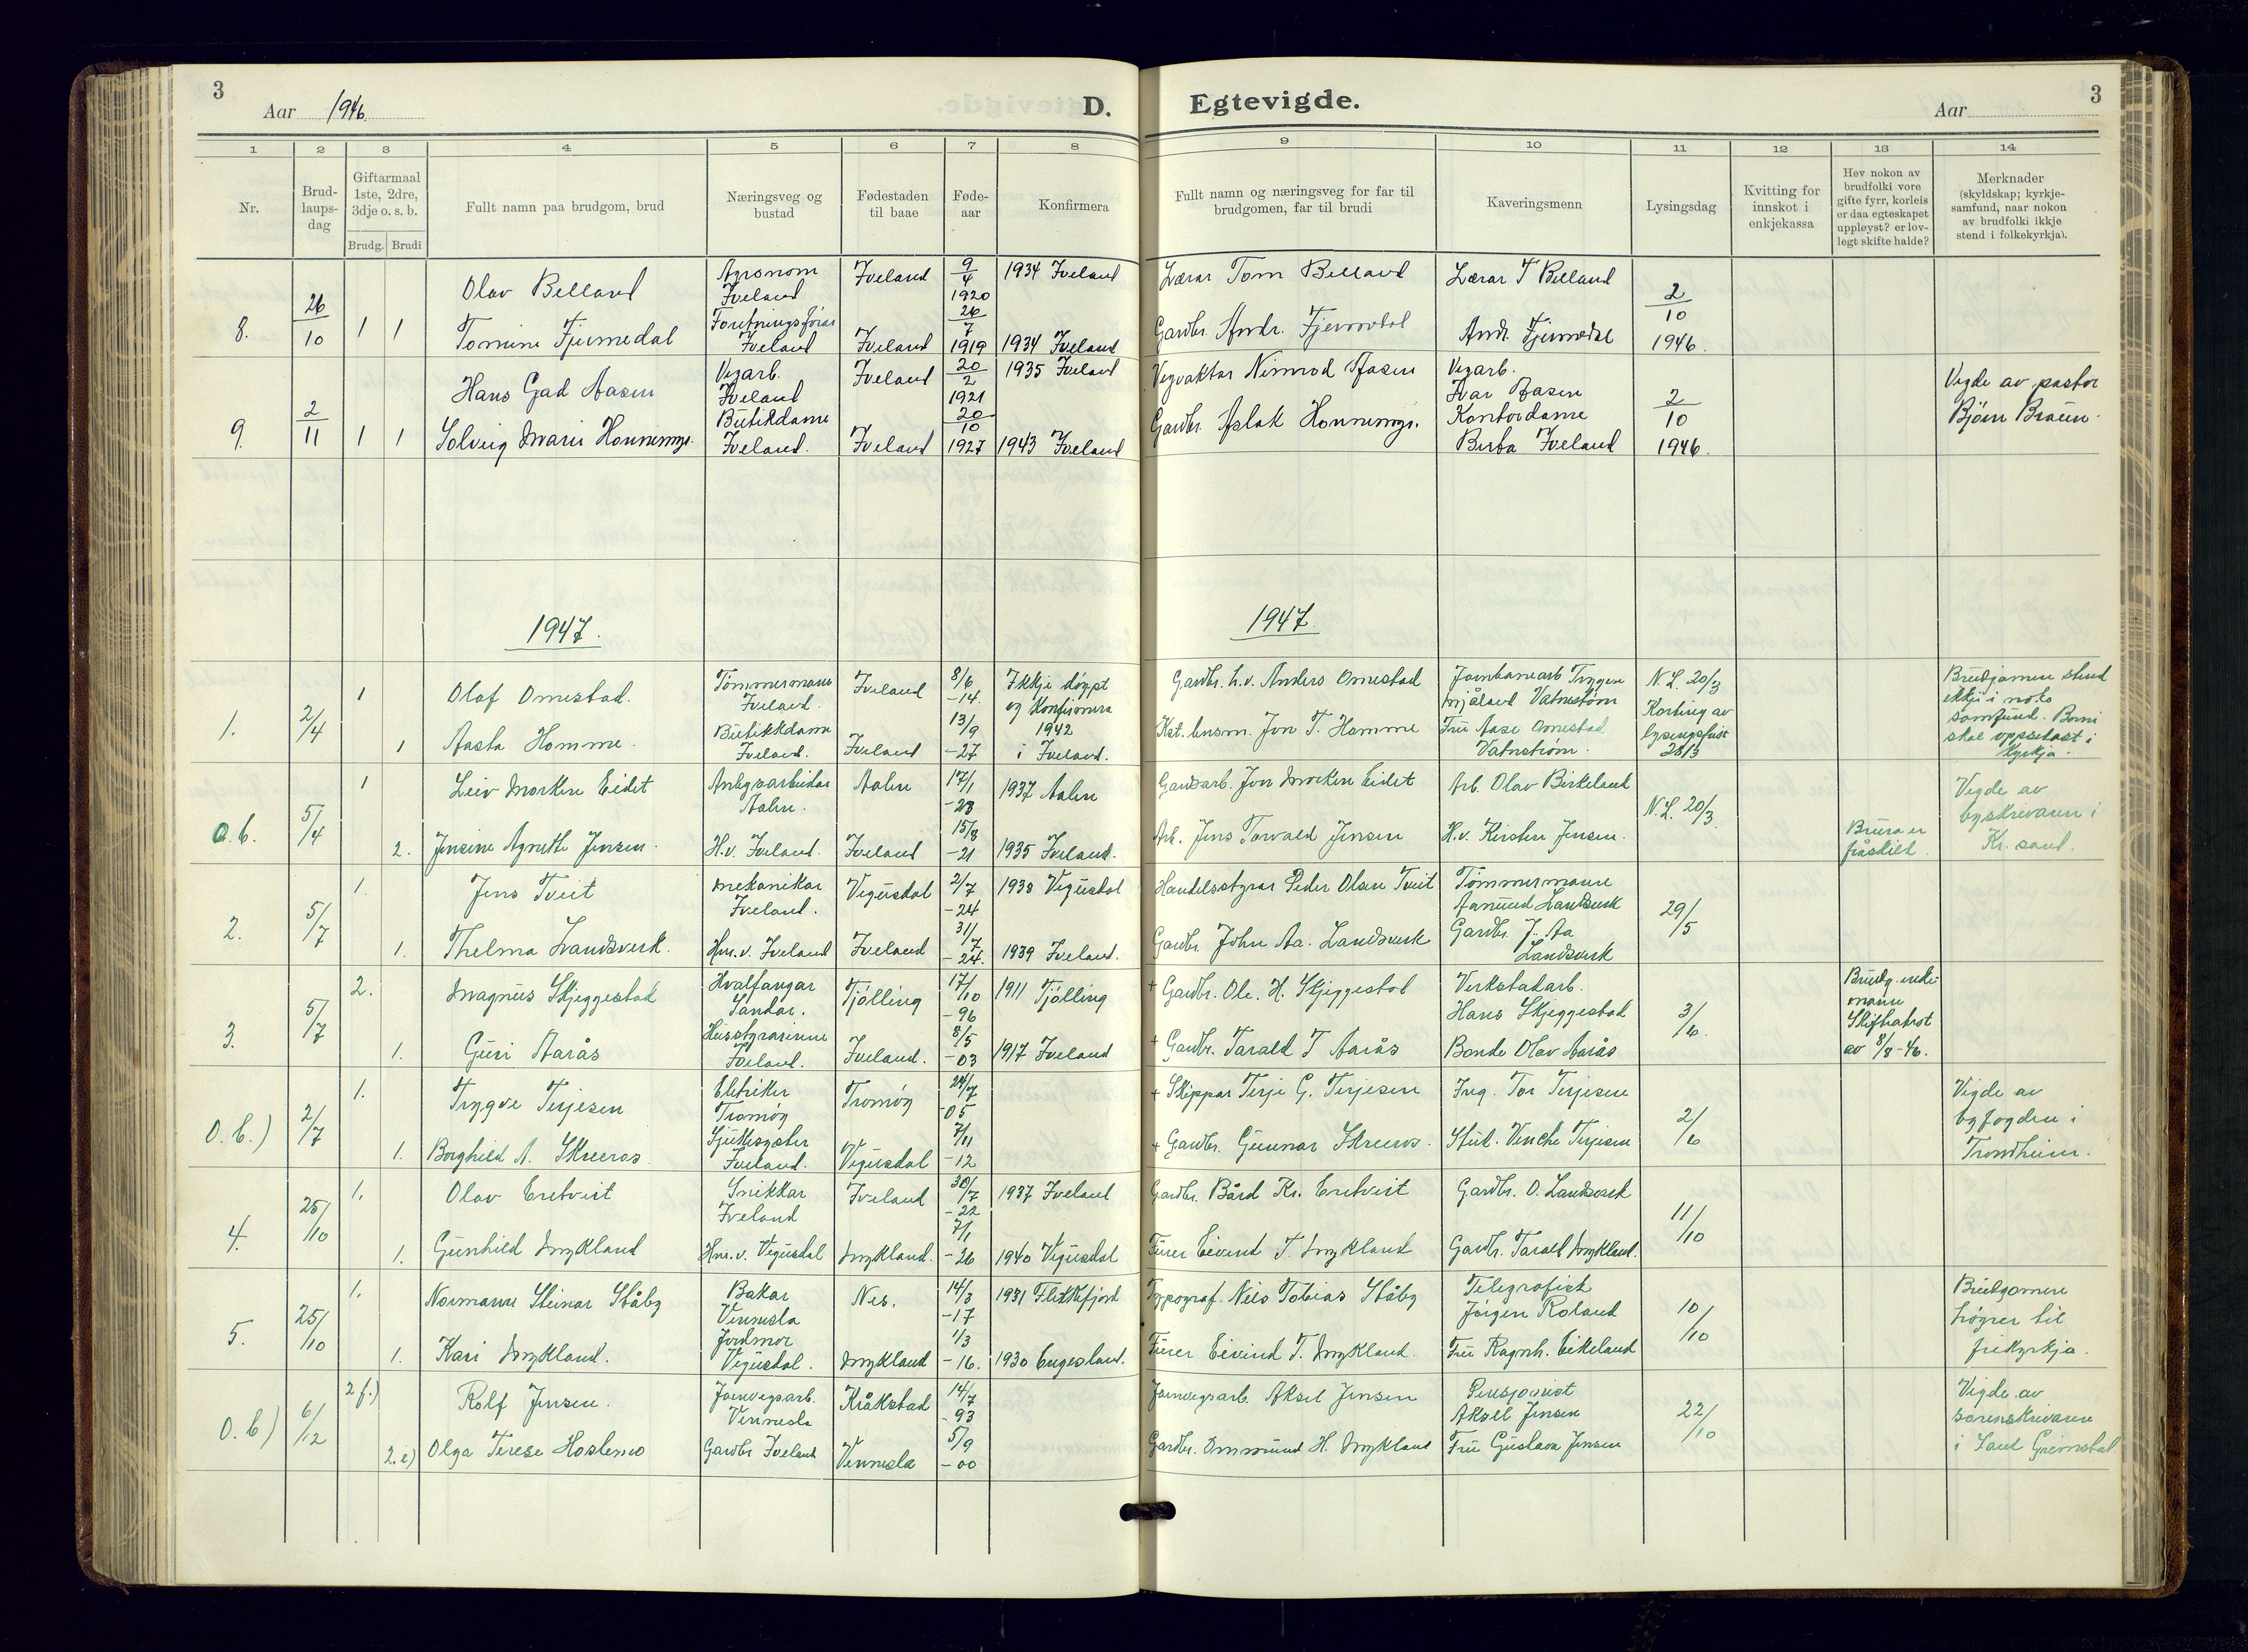 3
Aar 1946.
D.
Egtevigde.
Aar
3
1 2 3 4 5 6 7 8 9 10 11 12 13 14
Nr.
Brud-
laups-
dag
Giftarmaal
1ste, 2dre,
3dje o. s. b.
Brudg. Brudi
Fullt namn paa brudgom, brud
Næringsveg og
bustad
Fødestaden
til baae
Føde-
aar
Konfirmera
Fullt namn og næringsveg for far til
brudgomen, far til brudi
Kaveringsmenn
Lysingsdag
Kvitting for
innskot i
enkjekassa
Hev nokon av
brudfolki vore
gifte fyrr, korleis
er daa egteskapet
uppløyst? er lov-
legt skifte halde?
Merknader
(skyldskap; kyrkje-
samfund, naar nokon
av brudfolki ikkje
stend i folkekyrkja).
8. 26/10 1 1
Olav Belland
Agronom
Iveland
Iveland
9/4
1920
1934 Iveland
Lærar Tom Belland
Lærar T Belland
2/10
1946.
Tomine Fjermedal
Foretningsførar
Iveland
Iveland
26/7
1919
1934 Iveland
Gardbr. Andr. Fjermedal
Andr. Fjermedal
9. 2/11 1 1
Hans Gad Aasen
Vegarb.
Iveland
Iveland
20/2
1921
1935 Iveland
Vegvaktar Nimrod Aasen
Vegarb.
Ivar Aasen
2/10
1946.
Vigde av pastor
Bjørn Braüen.
Solveig Marie Honnemyr.
Bütikdame
Iveland.
Iveland
20/10
1927
1943 Iveland
Gardbr. Aslak Honnemyr.
Kontordame
Berta Iveland
1947.
1947.
1. 2/4 1
Olaf Omestad.
Tømmermann
Iveland.
Iveland
8/6
-14.
Ikkje døypt
og Konfirmera
Gardbr. h.v. Anders Omestad
Jarnbanearb Trygve
Mjåland Vatnstrøm
N. L. 20/3
Korting av
lysingsfrist
28/3
Brüdgomen stend
ikkje i noko
samfünd. Borni
skal oppsedast i
Kyrkja.
1
Aasta Homme.
Bütikkdame
Iveland.
Iveland
13/9
-27
1942
i Iveland.
Kst. lensm. Jon T. Homme
Früe Aase Omestad
Vatnstrøm.
o. b. 5/4 1
Leiv Morken Eidet
Anlegsarbeidar
Aalen.
Aalen
17/1
-23
1937 Aalen
Gardsarb. Jon Morken Eidet
Arb. Olav Birkeland
N. L. 20/3.
Vigde av
byskrivaren i
Kr. sand.
2.
Jensine Agnethe Jensen.
H.v. Iveland.
Iveland
15/8
-21
1935 Iveland.
Arb. Jens Torvald Jensen
H.v. Kirsten Jensen.
Brüra er
fråskilt
2. 5/7 1.
Jens Tveit
Mekanikar
Iveland.
Vegüsdal
2/7
-24
1938 Vegüsdal
Handelsstyrar Peder Olsen Tveit
Tømmermann
Aamünd Landsverk
29/5
1.
Thelma Landsverk.
Hus.v. Iveland
Iveland
31/7
-24.
1939 Iveland.
Gardbr. John Aa. Landsverk
Gardbr. J. Aa
Landsverk
3. 5/7 2.
Magnüs Skjeggestad
Hvalfangar
Sandar.
Tjølling
17/10
-96
1911 Tjølling
+ Gardbr. Ole. H. Skjeggestad
Verkstadarb.
Hans Skjeggestad
3/6.
Brüdg. enke-
mann
Skifteatest
av 8/8-46.
1.
Güri Aarås
Hüsstyrarinne
Iveland.
Iveland.
8/5
-03
1917 Iveland
+ Gardbr. Tarald T Aarås
Bonde Olav Aarås
o. b.) 2/7 1.
Trygve Terjesen
Eletriker
Tromøy
Tromøy
24/7
-05
+ Skippar Terje G. Terjesen
Ing. Tor Terjesen
2/6
Vigde av
byfogden i
Trondheim.
1.
Borghild A. Skreros.
Sjüksyster
Iveland.
Vegüsdal
7/11
-12
+ Gardbr. Günnar Skreros.
Stüd. Venche Terjesen
4. 25/10 1.
Olav Eretveit
Snikkar
Iveland
Iveland
30/7
-22
1937 Iveland
Gardbr. Bård Kr. Eretveit
Gardbr. O. Landsverk
11/10
1.
Günhild Mykland
Hus.v. Vegüsdal
Mykland
7/1
-26
1940 Vegüsdal
Fürer Eivind T. Mykland
Gardbr. Tarald Mykland.
5. 25/10 1.
Normann Steinar Ståby
Bakar
Vennesla
Nes.
14/3
-17
1931 Flekkefjord
Typograf. Nils Tobias Ståby
Telegrafist
Jørgen Roland
10/10
Brüdgomen
høyrer til
frikyrkja.
1.
Kari Mykland.
Jordmor
Vegüsdal.
Mykland
1/3
-16.
1930 Engesland.
Fürer Eivind T. Mykland.
Früe Ragnh. Eikeland
o. b) 6/12 2 f.)
Rolf Jensen.
Jarnvegsarb.
Vennesla
Kråkstad
14/7
-93
Jarnvegsarb. Aksel Jensen
Pensjonist
Aksel Jensen
22/10
Vigde av
sorenskrivaren
i Sand Grimstad
2.e)
Olga Terese Hoslemo
Gardbr Iveland
Vennesla
5/9
-00
Gardbr. Ommünd H. Mykland
Früe Güstava Jensen